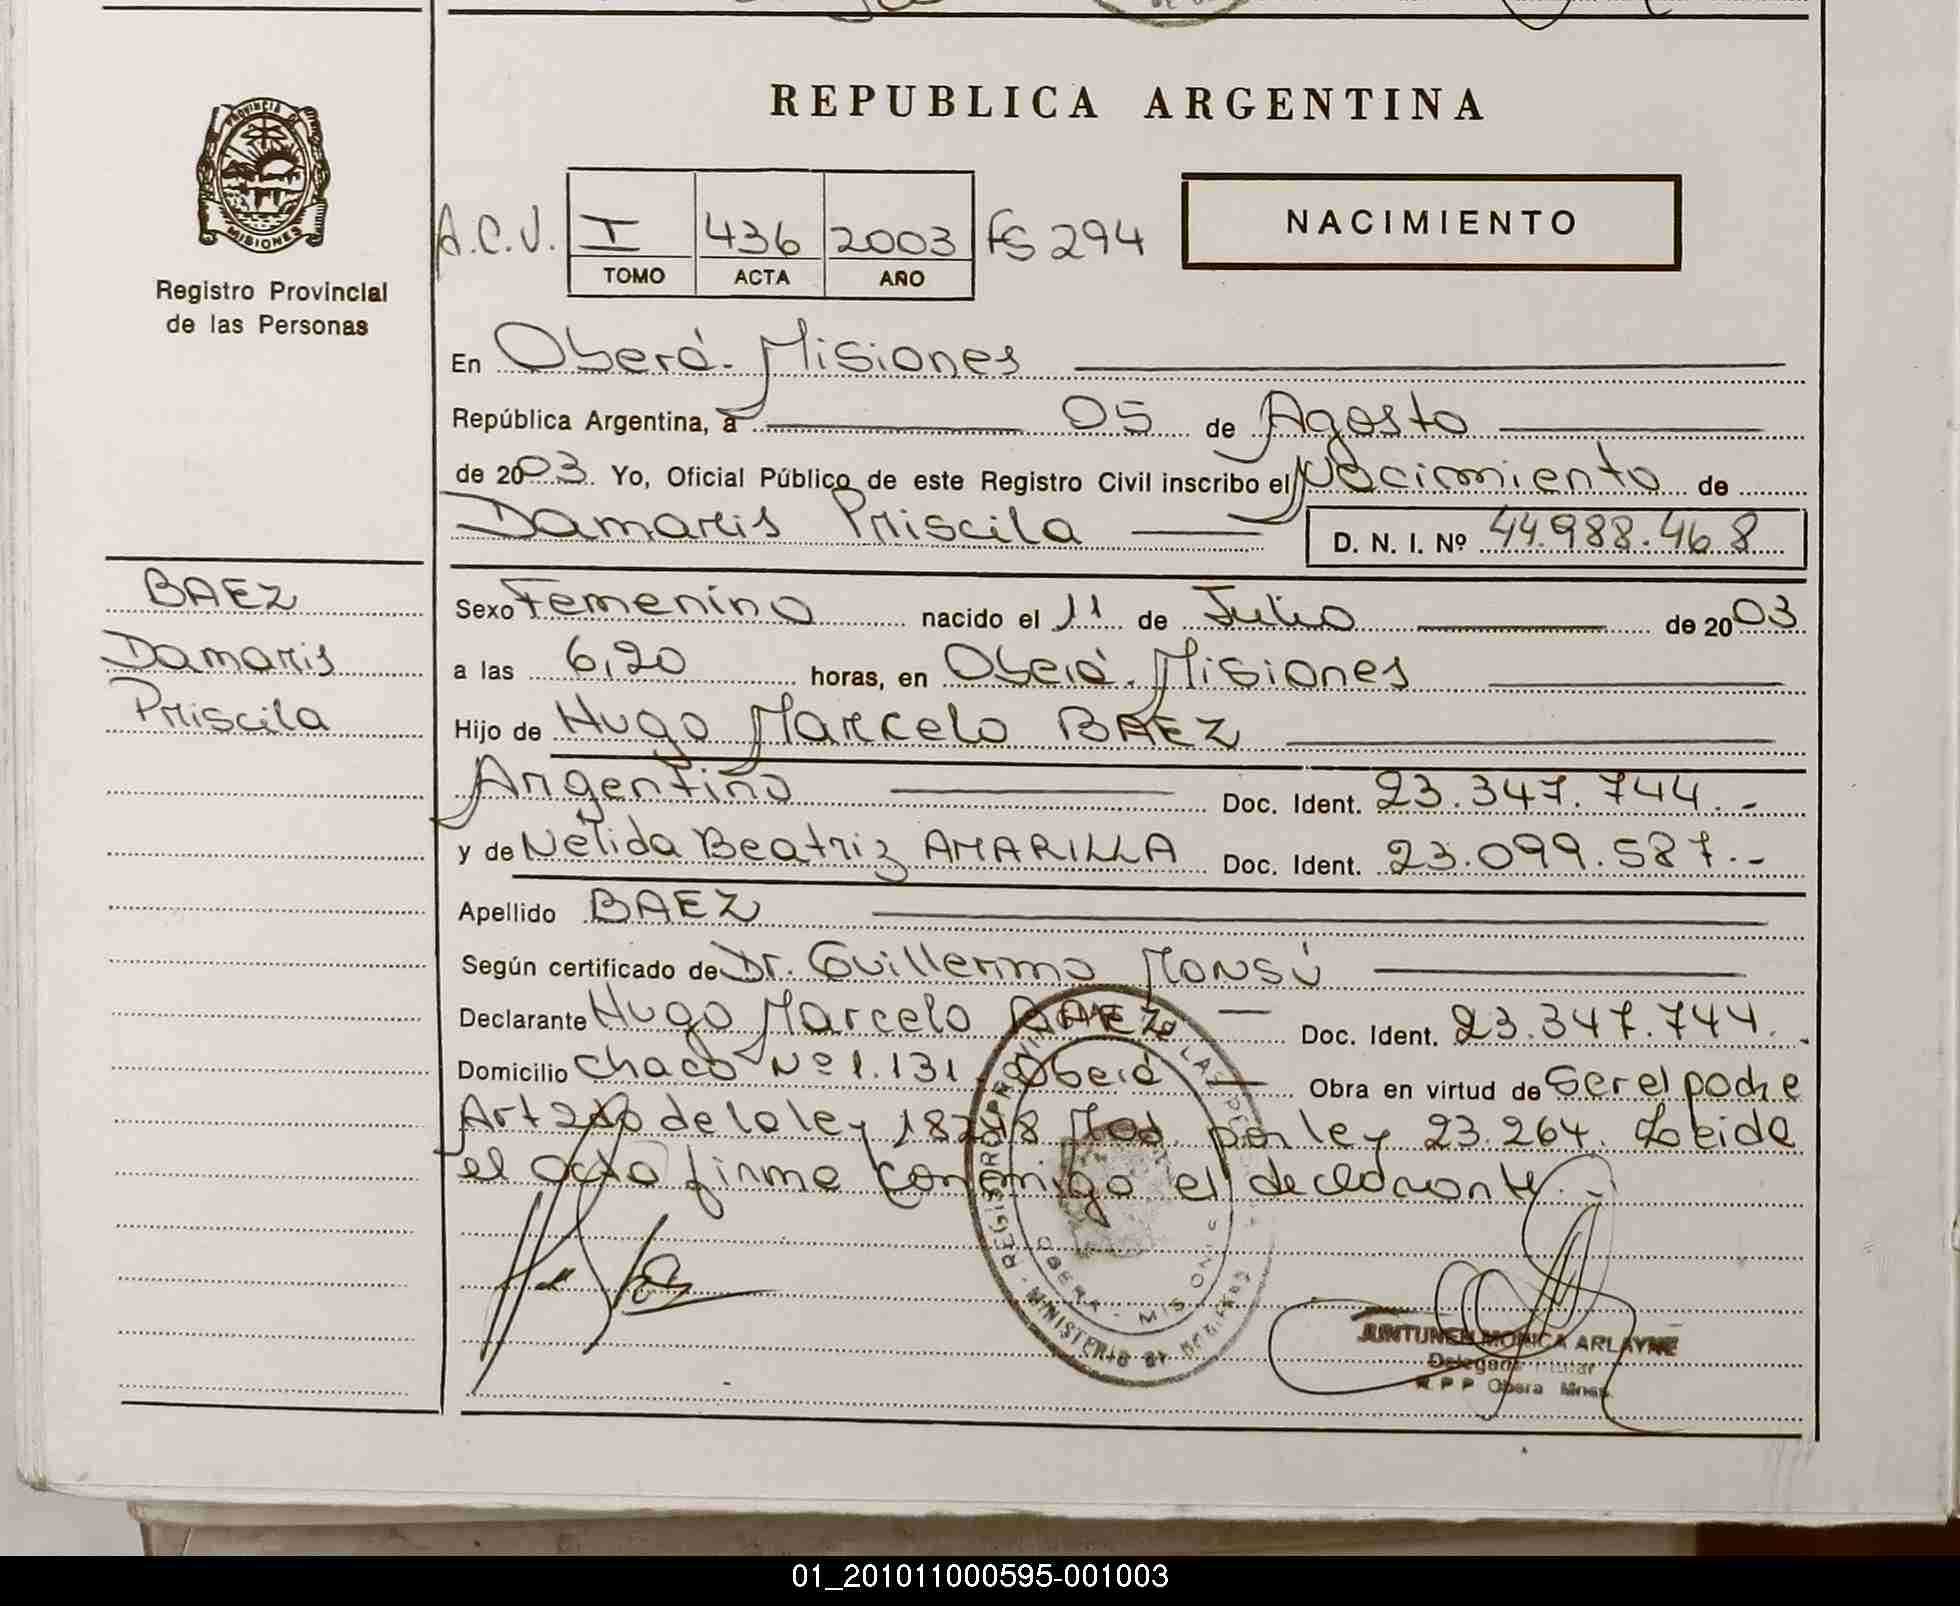 REPUBLICA ARGENTINA
PROVINCIA DE
MISIONES
Registro Provincial
de las Personas
A.C.V. I 436 2003 FS 294
TOMO ACTA AÑO
NACIMIENTO
En Oberá - Misiones
República Argentina, a 05 de Agosto
de 2003. Yo, Oficial Público de este Registro Civil inscribo el Nacimiento de
Damaris Priscila D. N. I. Nº 44.988.468
BAEZ
Damaris
Priscila
Sexo Femenino nacido el 11 de Julio de 2003
a las 6,20 horas, en Oberá - Misiones
Hijo de Hugo Marcelo BAEZ
Argentino Doc. Ident. 23.347.744.-
y de Nélida Beatriz AMARILLA Doc. Ident. 23.099.587.-
Apellido BAEZ
Según certificado de Dr. Guillermo Monsú
Declarante Hugo Marcelo BAEZ Doc. Ident. 23.347.744.
Domicilio Chaco Nº 1.131 - Oberá Obra en virtud de Ser el padre
Art de la ley 18248 Mod. por ley 23.264. Leida
el acta firma conmigo el declarante.-
REGISTRO LAS
OBERA - MISIONES
MINISTERIO DE
JUNTUNEN MONICA ARLAYNE
Delegada Titular
R. P. P Obera Mnes.
01_201011000595-001003